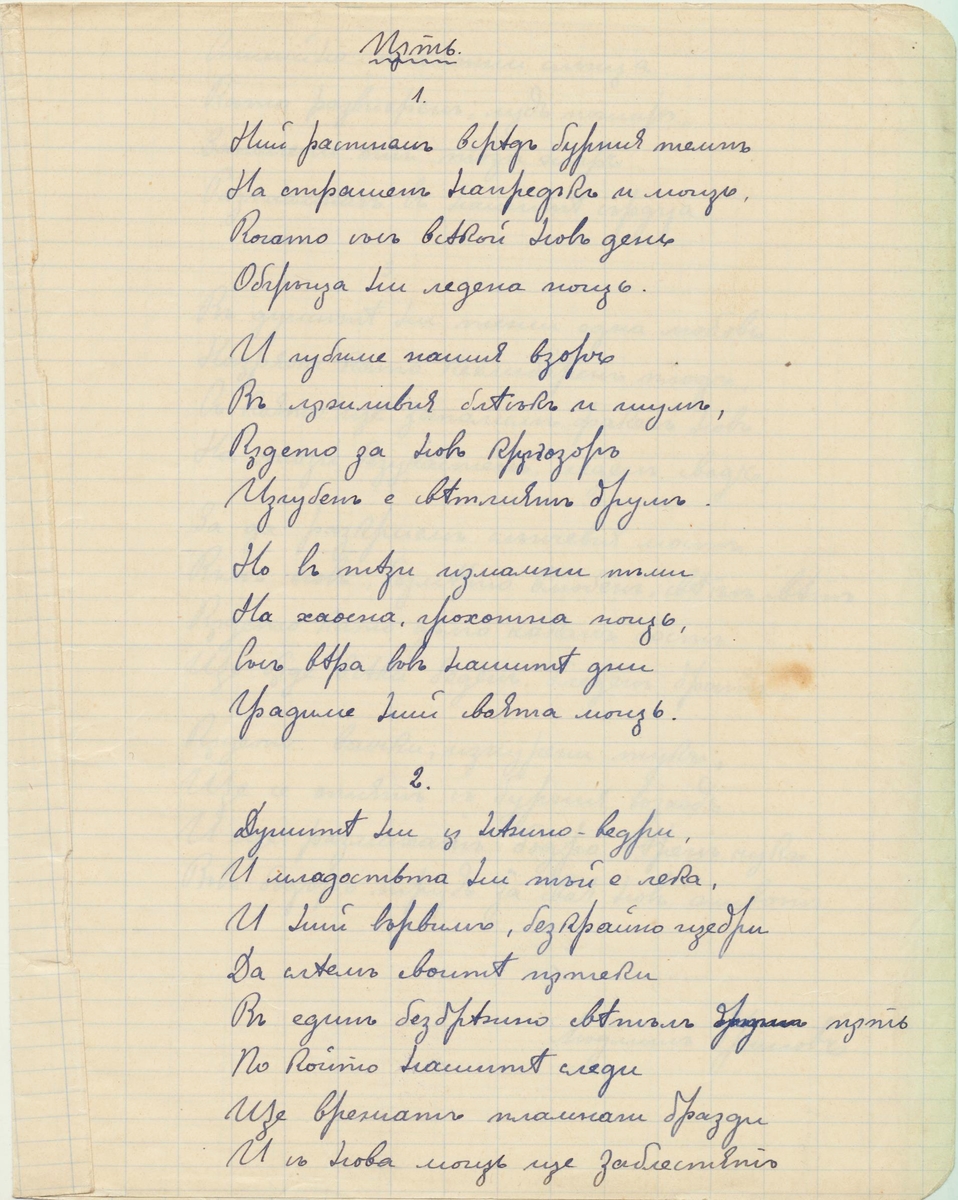 Пѫть.
1.
Ний растнемъ всрѣдъ бурния темпъ
На страшенъ напредъкъ и мощь,
Когато съсъ всѣкой новъ день
Обгръща ни ледена нощь.
И губиме нашия взоръ
Въ лъжливия блѣсъкъ и шумъ,
Кѫдето за новъ крѫгозоръ
Изгубенъ е свѣтлиятъ друмъ.
Но въ тѣзи измамни тъми
На хаосна, грохотна нощь,
Съсъ вѣра въвъ нашитѣ дни
Градиме ний своята мощь.
2.
Душитѣ ни сѫ нѣжно-ведри,
И младостьта ни тъй е лека,
И ний вървимъ, безкрайно щедри
Да слѣемъ своитѣ пѫтеки
Въ единъ безбрѣжно свѣтълъ пѫть
По който нашитѣ следи
Ще врежатъ пламнали бразди
И съ нова мощь ще заблестятъ